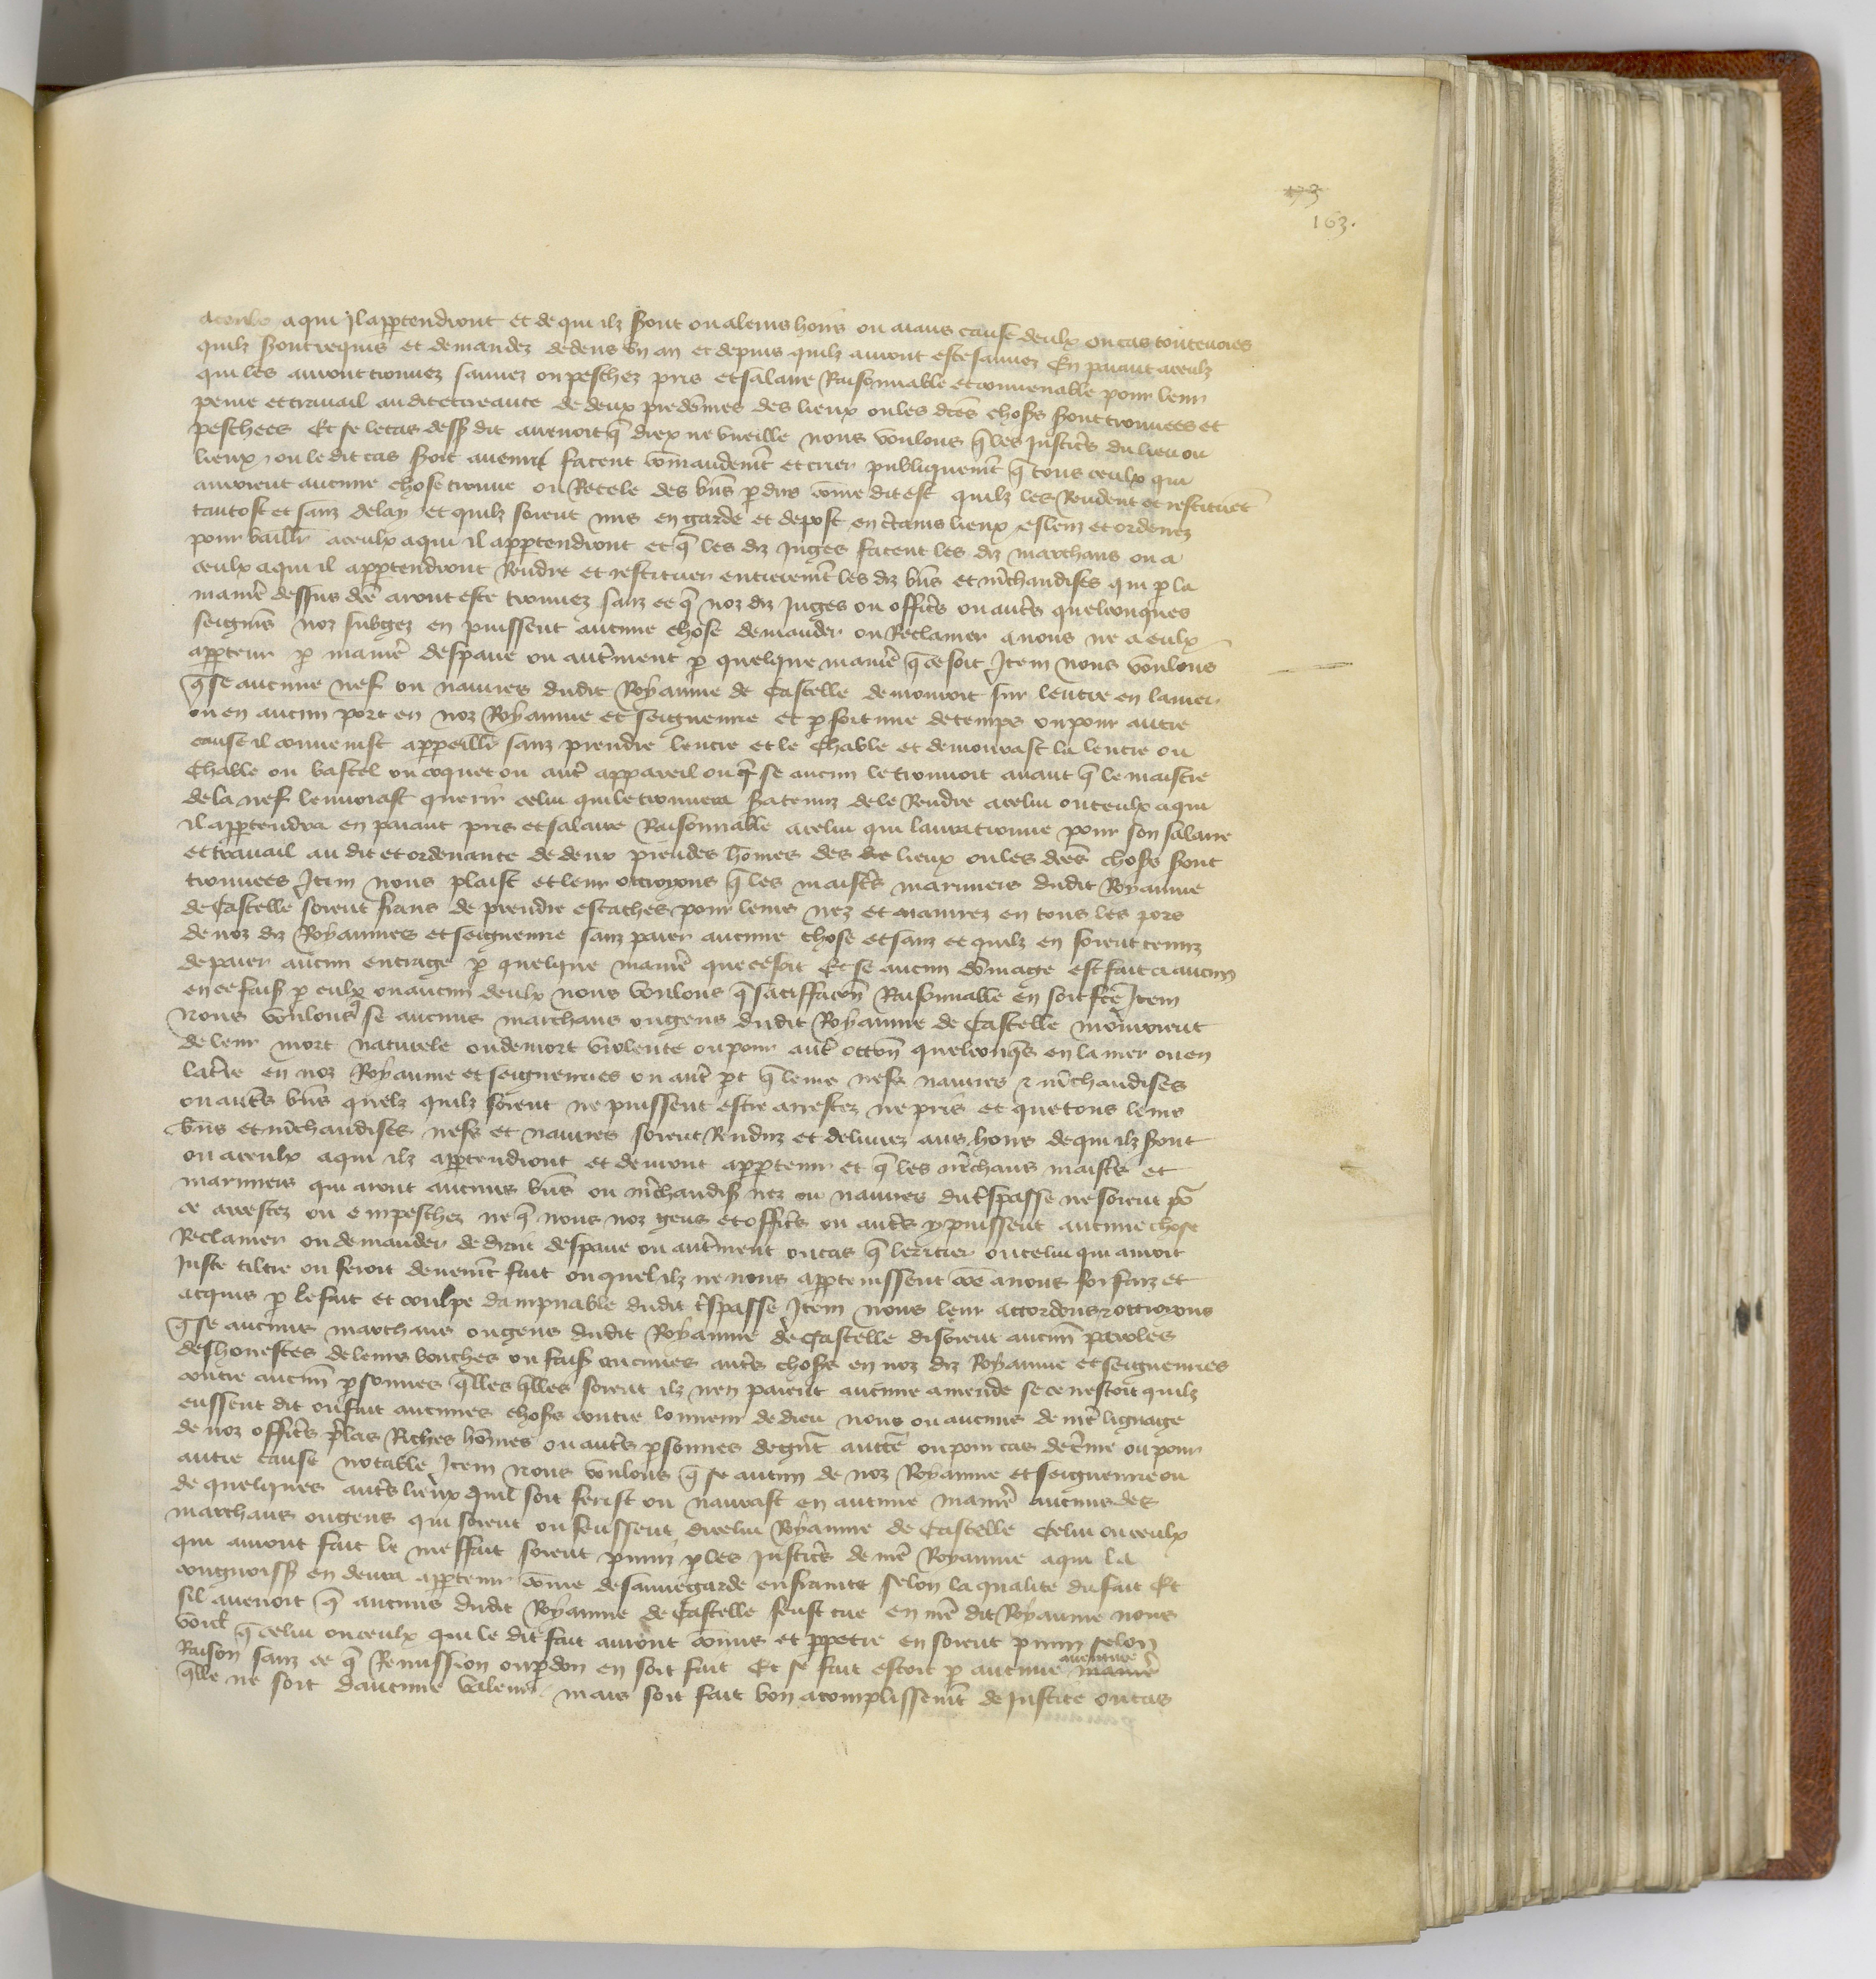 173
163.
aceulx a qui Il appartendront et de qui ilz sont ou a leurs hoirs ou aians cause deulx ou cas toutevoies
quilz sont requis et demandez dedens un an et depuis quilz auront este sauvez En paiant a ceulz
qui les auront trouvez sauvez ou peschez pris et salaire Raisonnable et convenable pour leur
peine et travail au dit et creante de deux predomes des lieux ou les dces choses sont trouvees et
peschees Et se le cas dess dit avenoit q diex ne vueille nous voulons q les Justices du lieu ou
lieux ou le dit cas soit avenu facent comandemt et crier publiquemt q tous ceulx qui
auroient aucune chose trouve ou Recele des bns pdus come dit est quilz les Rendent et restituet
tantost et sanz delay et quilz soient mis en garde et depost en ctains lieux esleuz et ordenez
pour baillr a ceulx a qui il appartendront et q les diz Juges facent les diz marchans ou a
ceulx a qui il appartendront Rendre et restituer entierement les diz bns et mchandises qui p la
manie dessus dce aront este trouvez sanz ce q noz diz Juges ou offices ou autes quelconques
seignrs noz subgez en puissent aucune chose demander ou Reclamer a nous ne a eulx
apptenir p manie despave ou autment p quelque manie q ce soit Item nous voulons
q se aucune nef ou navires dudit Royaume de Castelle demouroit sur lencre en la mer
ou en aucun port en noz Royaume et seigneurie et p fortune de temps ou pour autre
cause il convenist appeillr sanz prendre lencre et le Chable et demourast la lencre ou
Chable ou bastel ou coquet ou aut appareil ou q se aucun le trouvoit avant q le maistre
de la nef lenvoiast querir celui qui le trouvera sera tenuz de le Rendre a celui ou ceulx a qui
il appartendra en paiant pris et salaire Raisonnable a celui qui laura trouve pour son salaire
et travail au dit et ordenance de deux preudes homes des diz lieux ou les dces choses sont
trouvees Item nous plaist et leur ottroyons q les maistes mariniers dudit Royaume
de Castelle soient frans de prendre estaches pour leurs nez et navirez en tous les pors
de noz diz Royaumes et seigneurie sanz paier aucune chose et sanz ce quilz en soient tenuz
de paier aucun entrage p quelque manie que ce soit Et se aucun domage est fait a aucun
en ce fais p eulx ou aucun deulx nous voulons q satiffacon Raisonnable en soit fce Item
Nous voulons q se aucuns marchans ou gens dudit Royaume de Castelle mouroient
de leur mort naturele ou de mort violente ou pour aut occon quelconqs en la mer ou en
la tre en noz Royaume et seigneuries ou aut pt q leurs nefs navires et mchandises
ou autes bns quelz quilz soient ne puissent estre arrestez ne pris et que tous leurs
bns et mchandises nefs et navires soient Renduz et delivrez aus hoirs de qui ilz sont
ou a ceulx a qui ilz apptendront et devront apptenir et q les mchans maistes et
mariniers qui aront aucuns bns ou mchandis nez ou navires du tspasse ne soient po
ce arrestez ou empeschez ne q nous noz gens et offices ou autes y puissent aucune chose
Reclamer ou demander de droit despave ou autment ou cas q leritier ou celui qui auroit
Juste tiltre ou seroit deuement fait ou quel ilz ne nous apptenissent coe a nous forfaiz et
acquis p le fait et coulpe dampnable dudit tspasse Item nous leur accordons et ottroions
q se aucuns marchans ou gens dudit Royaume de Castelle disoient aucuns paroles
deshonestes de leurs bouches ou fais aucunes autes choses en noz diz Royaume et seigneuries
contre aucuns psonnes qlles qlles soient ilz nen paient aucune amende se ce nestoit quilz
eussent dit ou fait aucunes choses contre lonneur de dieu nous ou aucuns de nre lignage
de noz offices plas Riches homes ou autes psonnes de gnt aucte ou pour cas de cime ou pour
autre cause notable Item nous voulons q se aucun de noz Royaume et seigneurie ou
de quelques autes lieux quil soit ferist ou navrast en aucune manie aucuns des
marchans ou gens qui soient ou feussent dicelui Royaume de Castelle Celui ou ceulx
qui auront fait le meffait soient puniz p les Justices de nre Royaume a qui la
congnoiss en devra apptenir come de sauvegarde enfrainte selon la qualite du fait Et
sil avenoit q aucuns dudit Royaume de Castelle feust tue en nre dit Royaume nous
voulons q celui ou ceulx qui le dit fait auront comis et ppetre en soient puniz selon
Raison sanz ce q Remission ou pdon en soit fait Et se fait estoit p aucune aventure manie
qlle ne soit daucune valeur mais soit fait bon acomplissemt de Justice ou cas